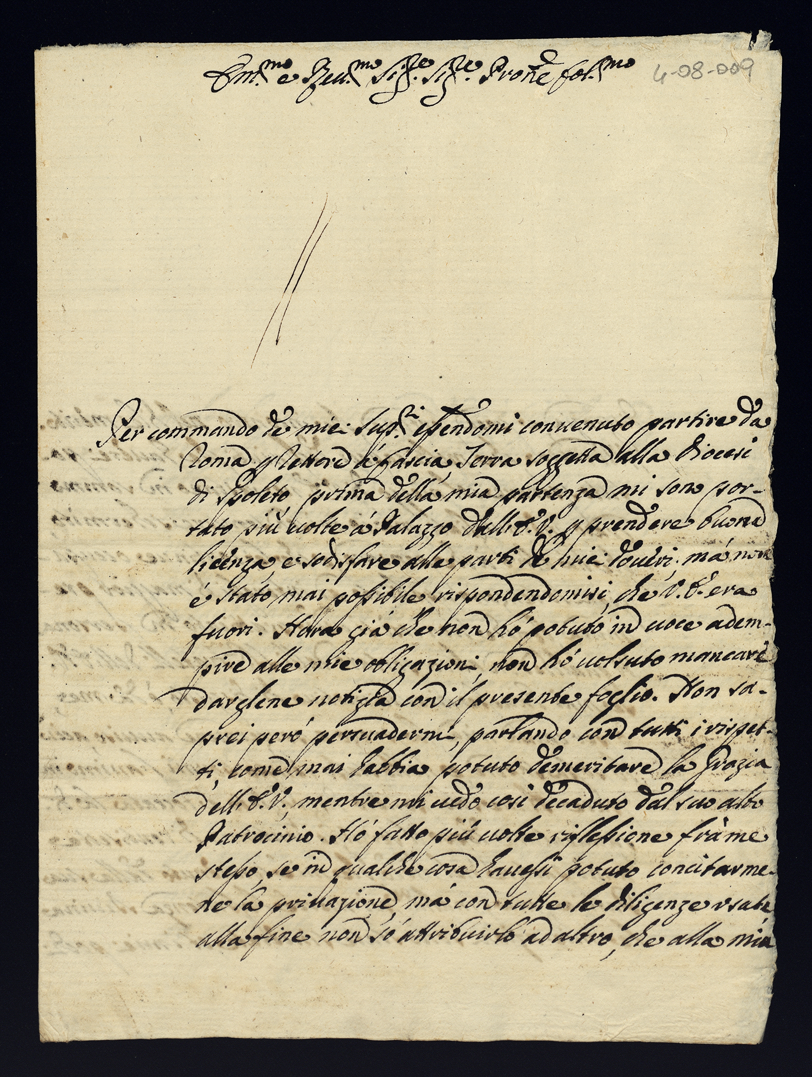 Em.mo e Reu.mo Sig.re Sig.re Prone Col.mo
4-08-009
Per commando de miei Sup.ri essendomi conuenuto partire da
Roma p Rettore à Cascia, Terra soggetta alla Diocesi
di Spoleto prima della mia partenza mi son por-
tato più uolte à Palazzo dell'E.V. p prendere buona
licenza e sodisfare alle parti de miei doueri; mà non
è stato mai possibile rispondendomisi, che V.E. era
fuori. Hora già che non hò potuto in uoce adem-
pire alle mie obligazioni non hò uolsuto mancare
dargliene notizia con il presente foglio. Non sa-
prei però persuadermi, parlando con tutti i rispet-
ti, come mai habbia potuto demeritare la Grazia
dell'E.V., mentre mi uedo così decaduto dal suo alto
Patrocinio. Hò fatto più uolte riflessione frà me
stesso se in qualche cosa hauessi potuto concitarme-
ne la priuazione mà con tutte le diligenze usate
alla fine non sò attribuirlo ad altro, che alla mia